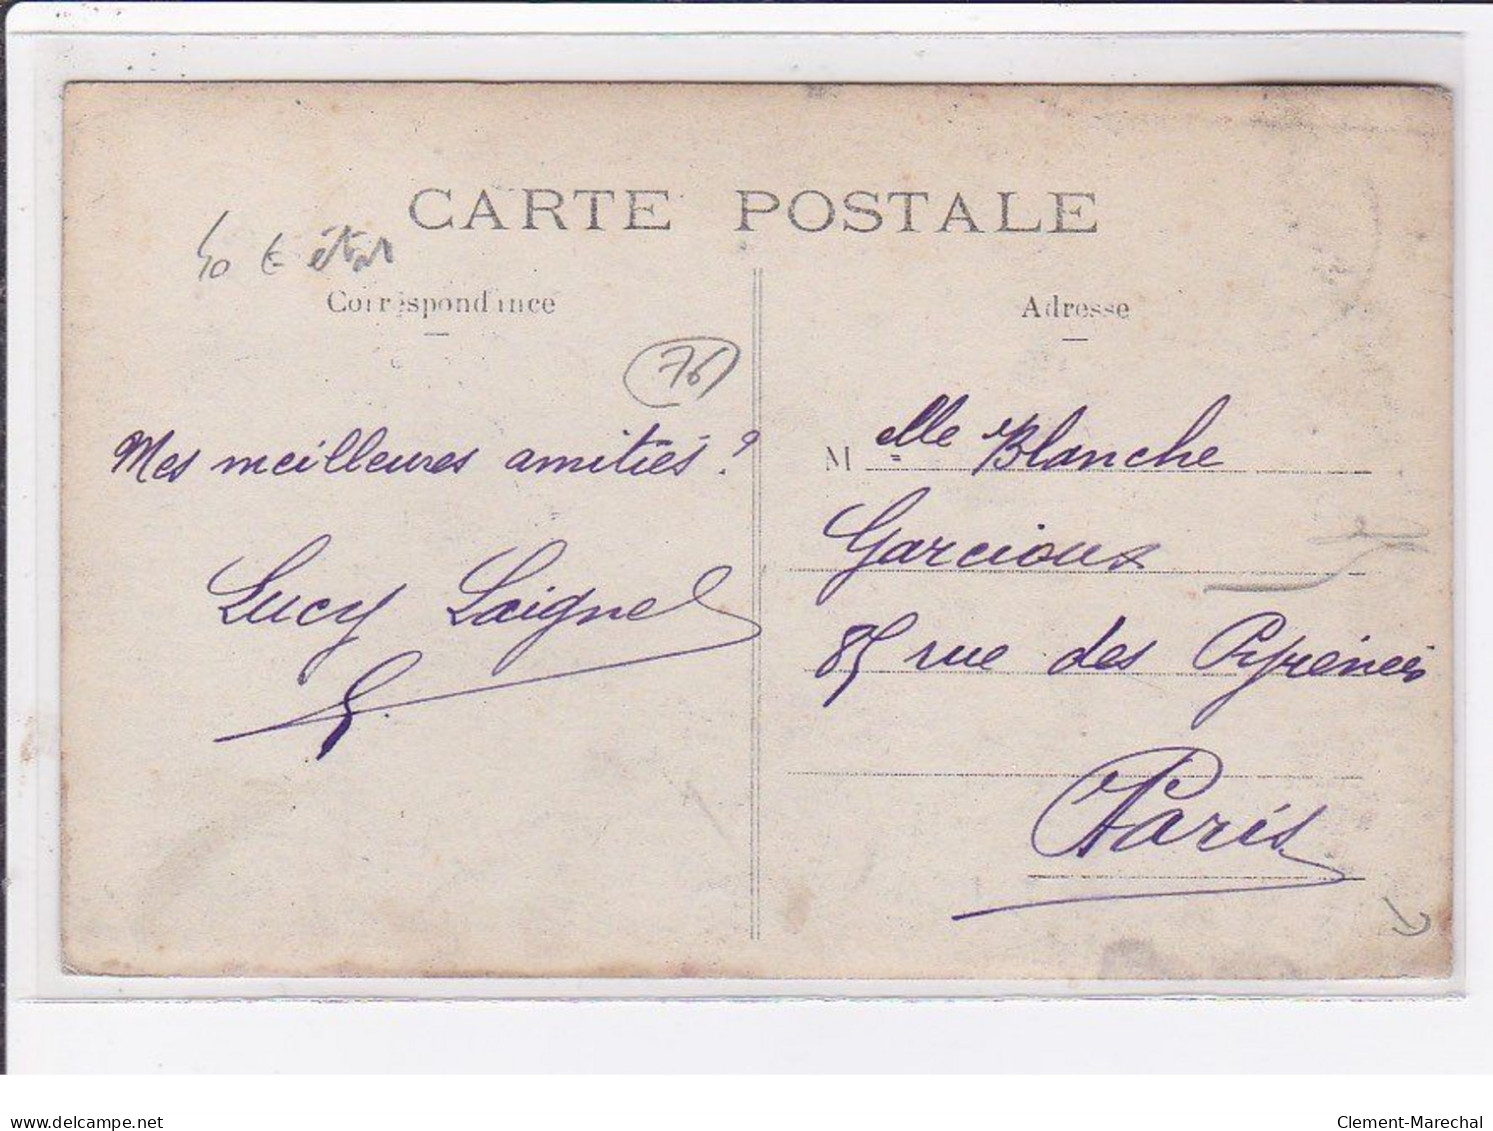 CARTE POSTALE
état
Correspondance
Adresse
76
Mes meilleures amitiés.
Lucy Laignel
M elle Blanche
Garcioux
85 rue des Pyrénées
Paris
delcampe.net
Clement-Marechal